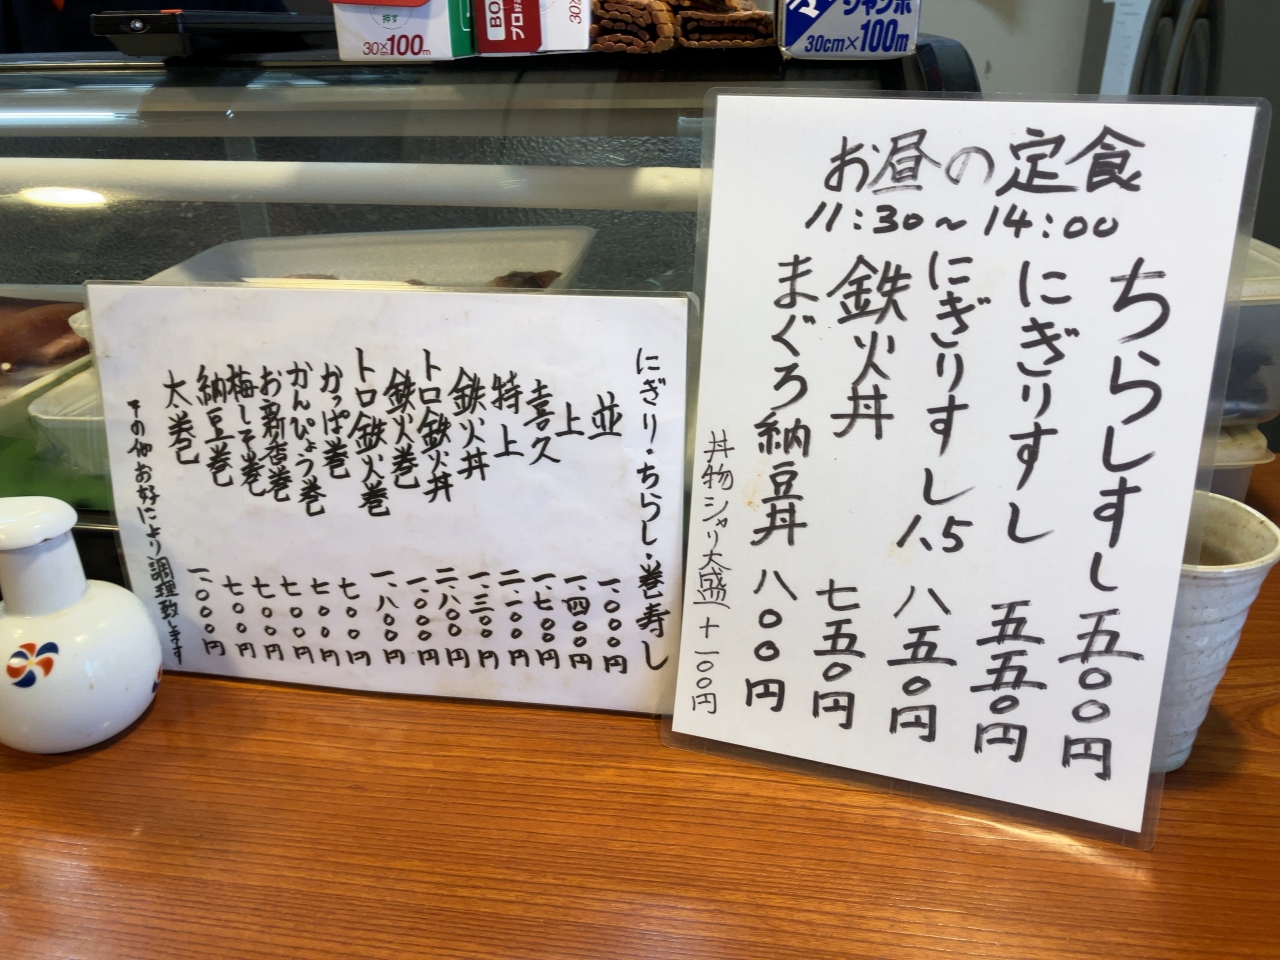 押す
30×100m
BO
プロ
30×
ジャンボ
30cm×100m
お昼の定食
11:30~14:00
ちらしすし 五〇〇円
にぎりすし 五五〇円
にぎりすし 1.5 八五〇円
鉄火丼 七五〇円
まぐろ納豆丼 八〇〇円
丼物シャリ大盛 + 一〇〇円
にぎり・ちらし・巻寿し
並 一、〇〇〇円
上 一、四〇〇円
喜久 一、七〇〇円
特上 二、一〇〇円
鉄火丼 一、三〇〇円
トロ鉄火丼 二、八〇〇円
鉄火巻 一、〇〇〇円
トロ鉄火巻 一、八〇〇円
かっぱ巻 七〇〇円
かんぴょう巻 七〇〇円
お新香巻 七〇〇円
梅しそ巻 七〇〇円
納豆巻 七〇〇円
大巻 一、〇〇〇円
その他お好により調理致します